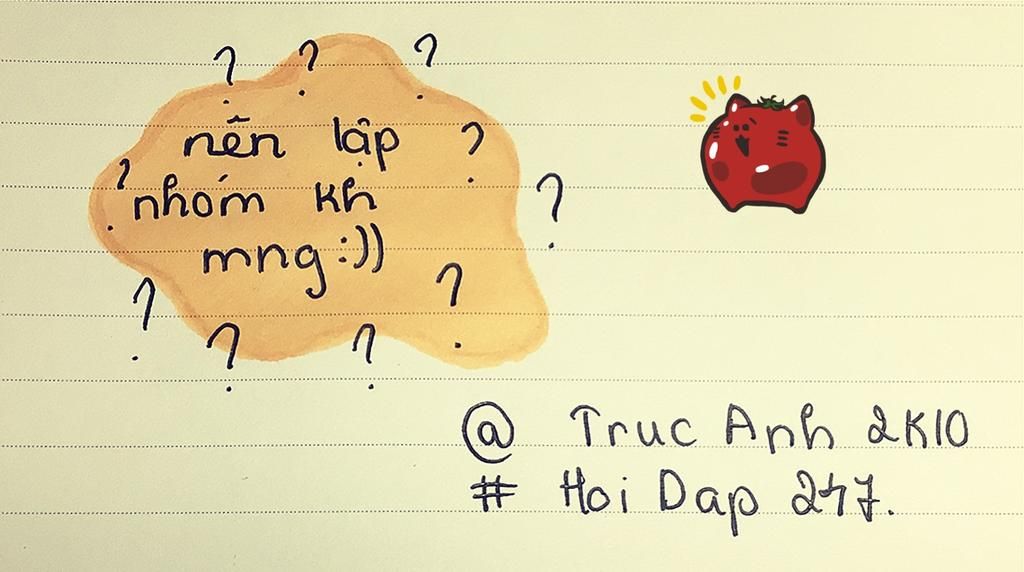 ? ? ?
nên lập ?
? nhóm kh ?
mng :))
? ?
? ?
@ Truc Anh 2K10
# Hoi Dap 247.